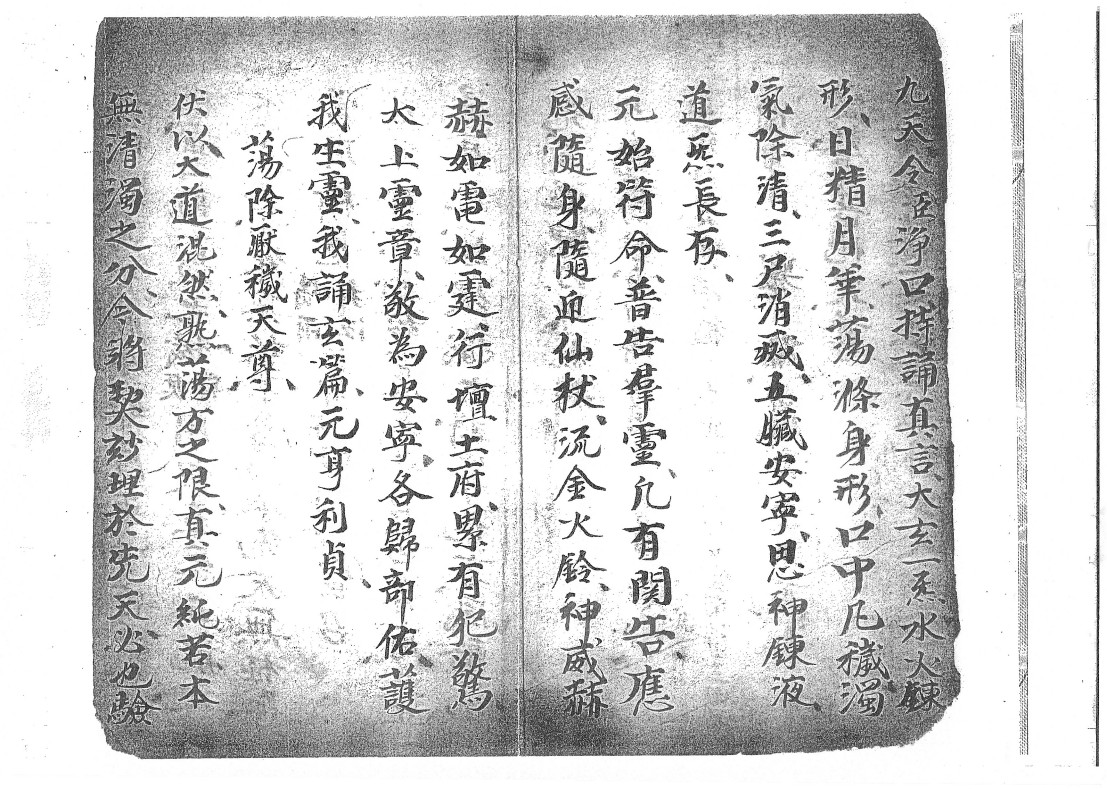 九天令臣淨口持誦真言大玄一炁水火鍊
形、日精月華、荡滌身形口中凡穢濁
氣除清、三尸消滅、五臟安寧、思神鍊液、
道炁長存、
元始符命普告羣靈、凡有関告、應
感隨身、隨迎仙杖、流金火鈴、神威赫
赫、如電如霆、行壇土府、累有犯驚
大上靈章、敬為安寧、各歸部佑護
我生靈、我誦玄篇、元亨利貞、
荡除厭穢天尊、
伏以大道混然、孰荡方之限、真元純若、本
無清濁之分、今將契玅埋於先天必也驗